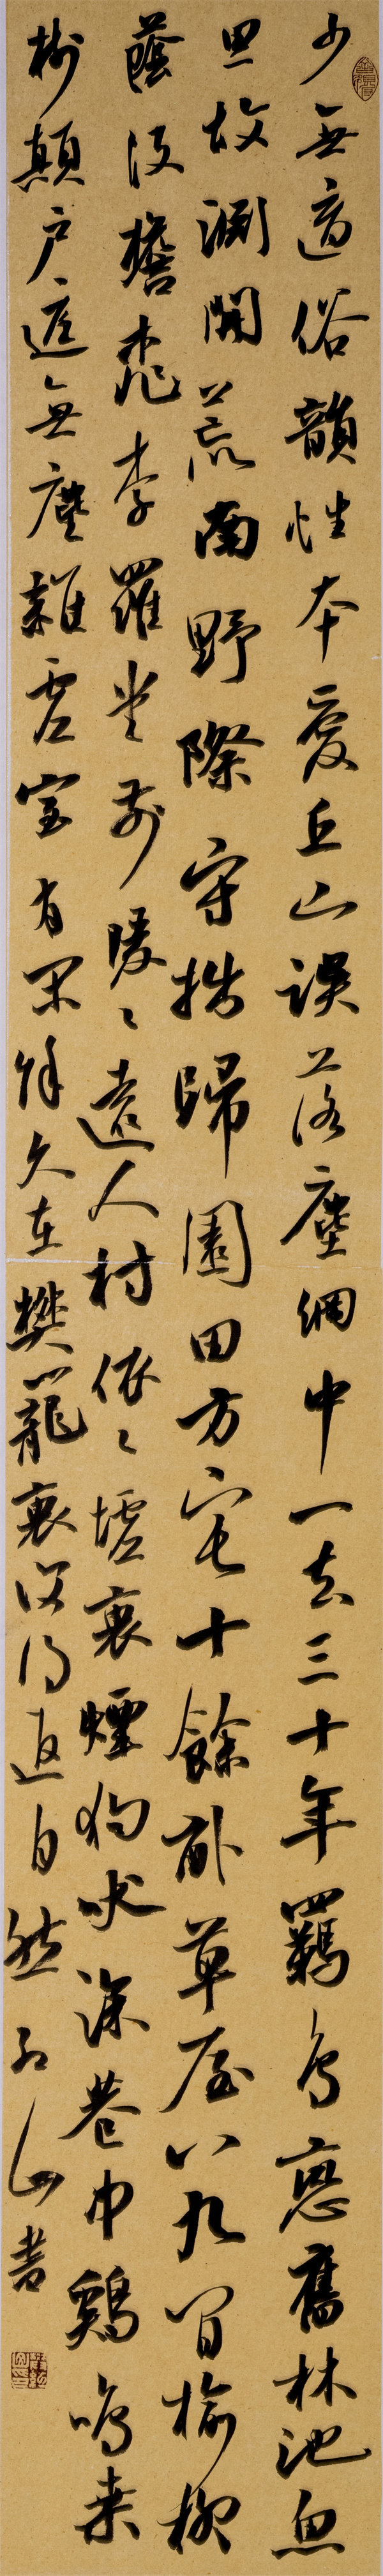 少無適俗韻性本愛丘山誤落塵網中一去三十年羈鳥戀舊林池魚
思故淵開荒南野際守拙歸園田方宅十餘畝草屋八九間榆柳
蔭後檐桃李羅堂前曖々遠人村依々墟裏煙狗吠深巷中鷄鳴桑
樹顛戶庭無塵雜虛室有閑餘久在樊籠裏復得返自然書